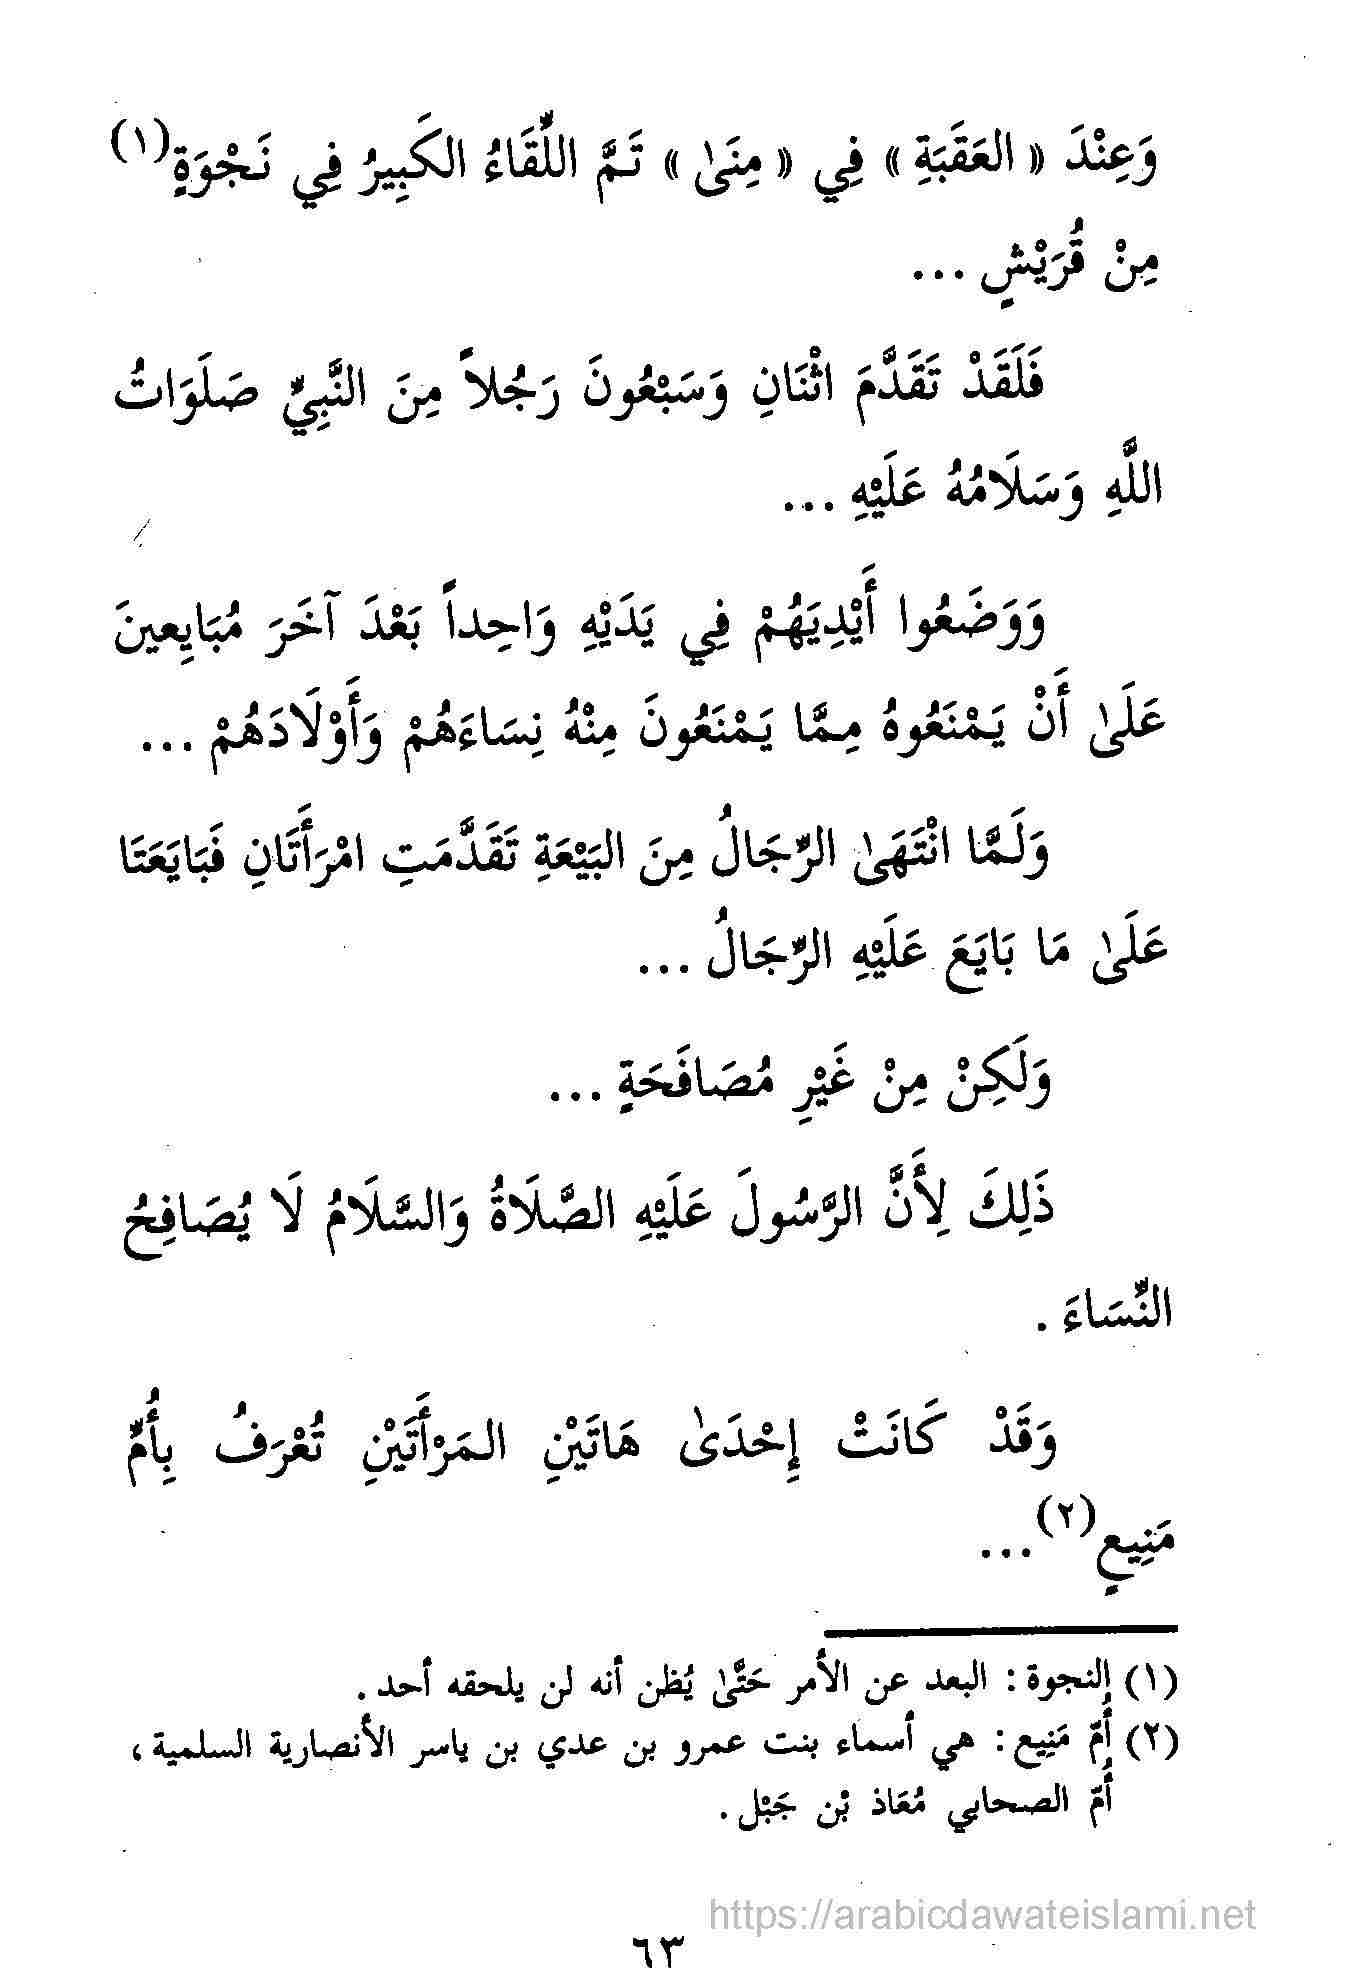 وَعِنْدَ « العَقَبَةِ » فِي « مِنَىٰ » تَمَّ اللِّقَاءُ الكَبِيرُ فِي نَجْوَةٍ(١)
مِنْ قُرَيْشٍ ...
فَلَقَدْ تَقَدَّمَ اثْنَانِ وَسَبْعُونَ رَجُلاً مِنَ النَّبِيِّ صَلَوَاتُ
اللَّهِ وَسَلَامُهُ عَلَيْهِ ...
وَوَضَعُوا أَيْدِيَهُمْ فِي يَدَيْهِ وَاحِداً بَعْدَ آخَرَ مُبَايِعِينَ
عَلَىٰ أَنْ يَمْنَعُوهُ مِمَّا يَمْنَعُونَ مِنْهُ نِسَاءَهُمْ وَأَوْلَادَهُمْ ...
وَلَمَّا انْتَهَىٰ الرِّجَالُ مِنَ البَيْعَةِ تَقَدَّمَتِ امْرَأَتَانِ فَبَايَعَتَا
عَلَىٰ مَا بَايَعَ عَلَيْهِ الرِّجَالُ ...
وَلَكِنْ مِنْ غَيْرِ مُصَافَحَةٍ ...
ذَلِكَ لِأَنَّ الرَّسُولَ عَلَيْهِ الصَّلَاةُ وَالسَّلَامُ لَا يُصَافِحُ
النِّسَاءَ .
وَقَدْ كَانَتْ إِحْدَىٰ هَاتَيْنِ المَرْأَتَيْنِ تُعْرَفُ بِأُمِّ
مَنِيعٍ(٢)...
(١) النجوة : البعد عن الأمر حَتَّىٰ يُظن أنه لن يلحقه أحد .
(٢) أُمّ مَنِيع : هي أسماء بنت عمرو بن عدي بن ياسر الأنصارية السلمية ،
أُمّ الصحابي مُعَاذ بْن جَبْل .
https://arabicdawateislami.net
٦٣